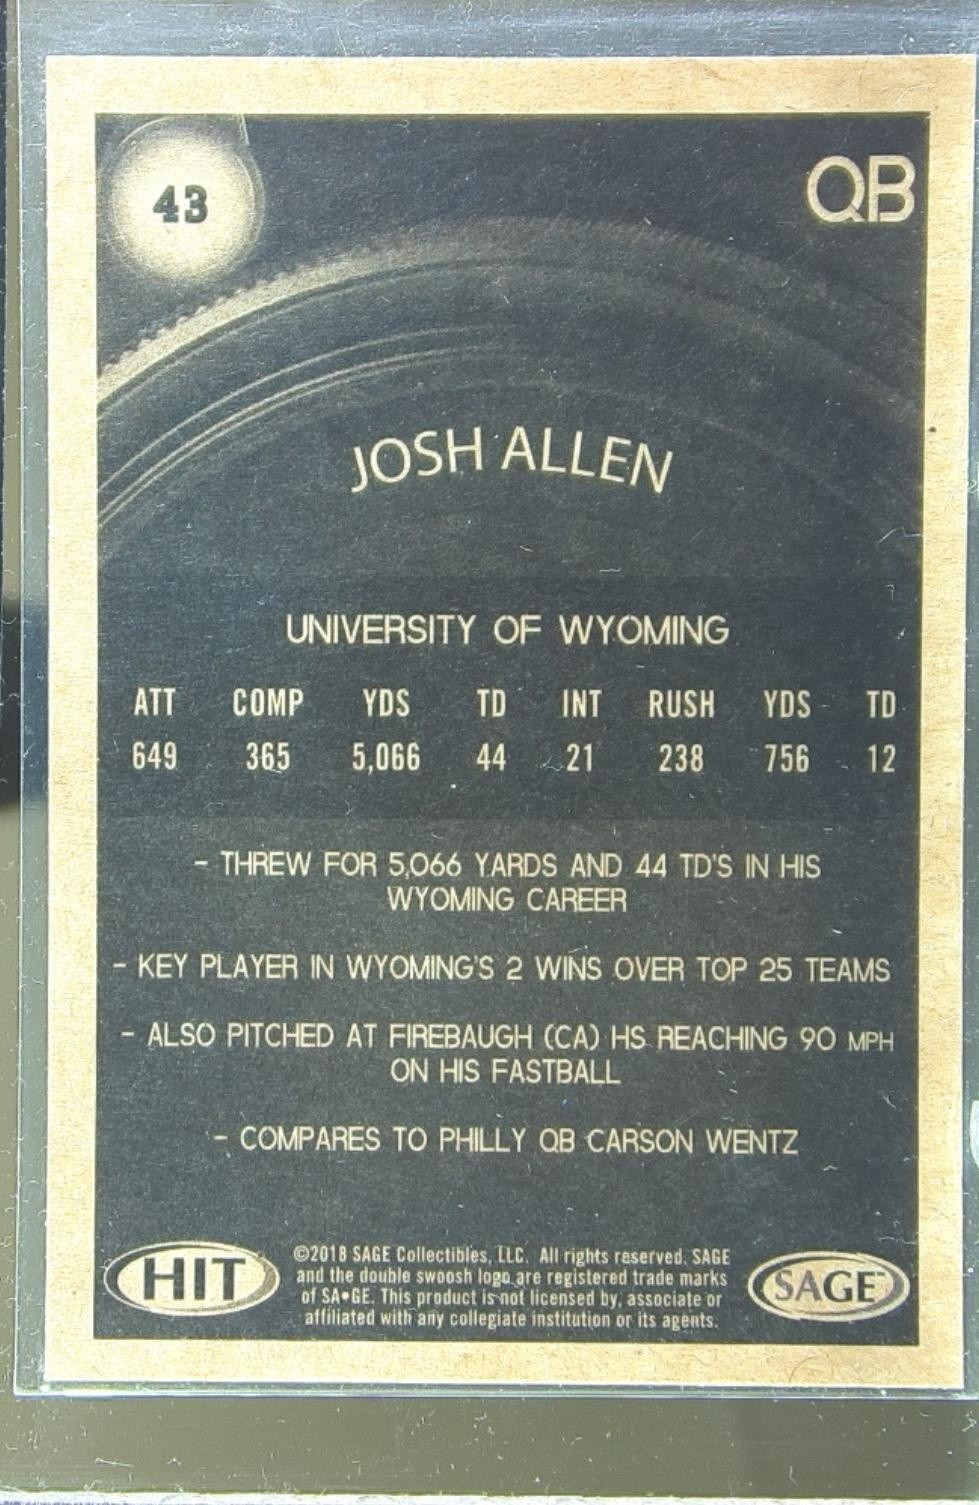 43
QB
JOSH ALLEN
UNIVERSITY OF WYOMING
ATT COMP YDS TD INT RUSH YDS TD
649 365 5,066 44 21 238 756 12
- THREW FOR 5,066 YARDS AND 44 TD'S IN HIS
WYOMING CAREER
- KEY PLAYER IN WYOMING'S 2 WINS OVER TOP 25 TEAMS
- ALSO PITCHED AT FIREBAUGH (CA) HS REACHING 90 MPH
ON HIS FASTBALL
- COMPARES TO PHILLY QB CARSON WENTZ
HIT
©2018 SAGE Collectibles, LLC. All rights reserved. SAGE
and the double swoosh logo are registered trade marks
of SA•GE. This product is not licensed by, associate or
affiliated with any collegiate institution or its agents.
SAGE™